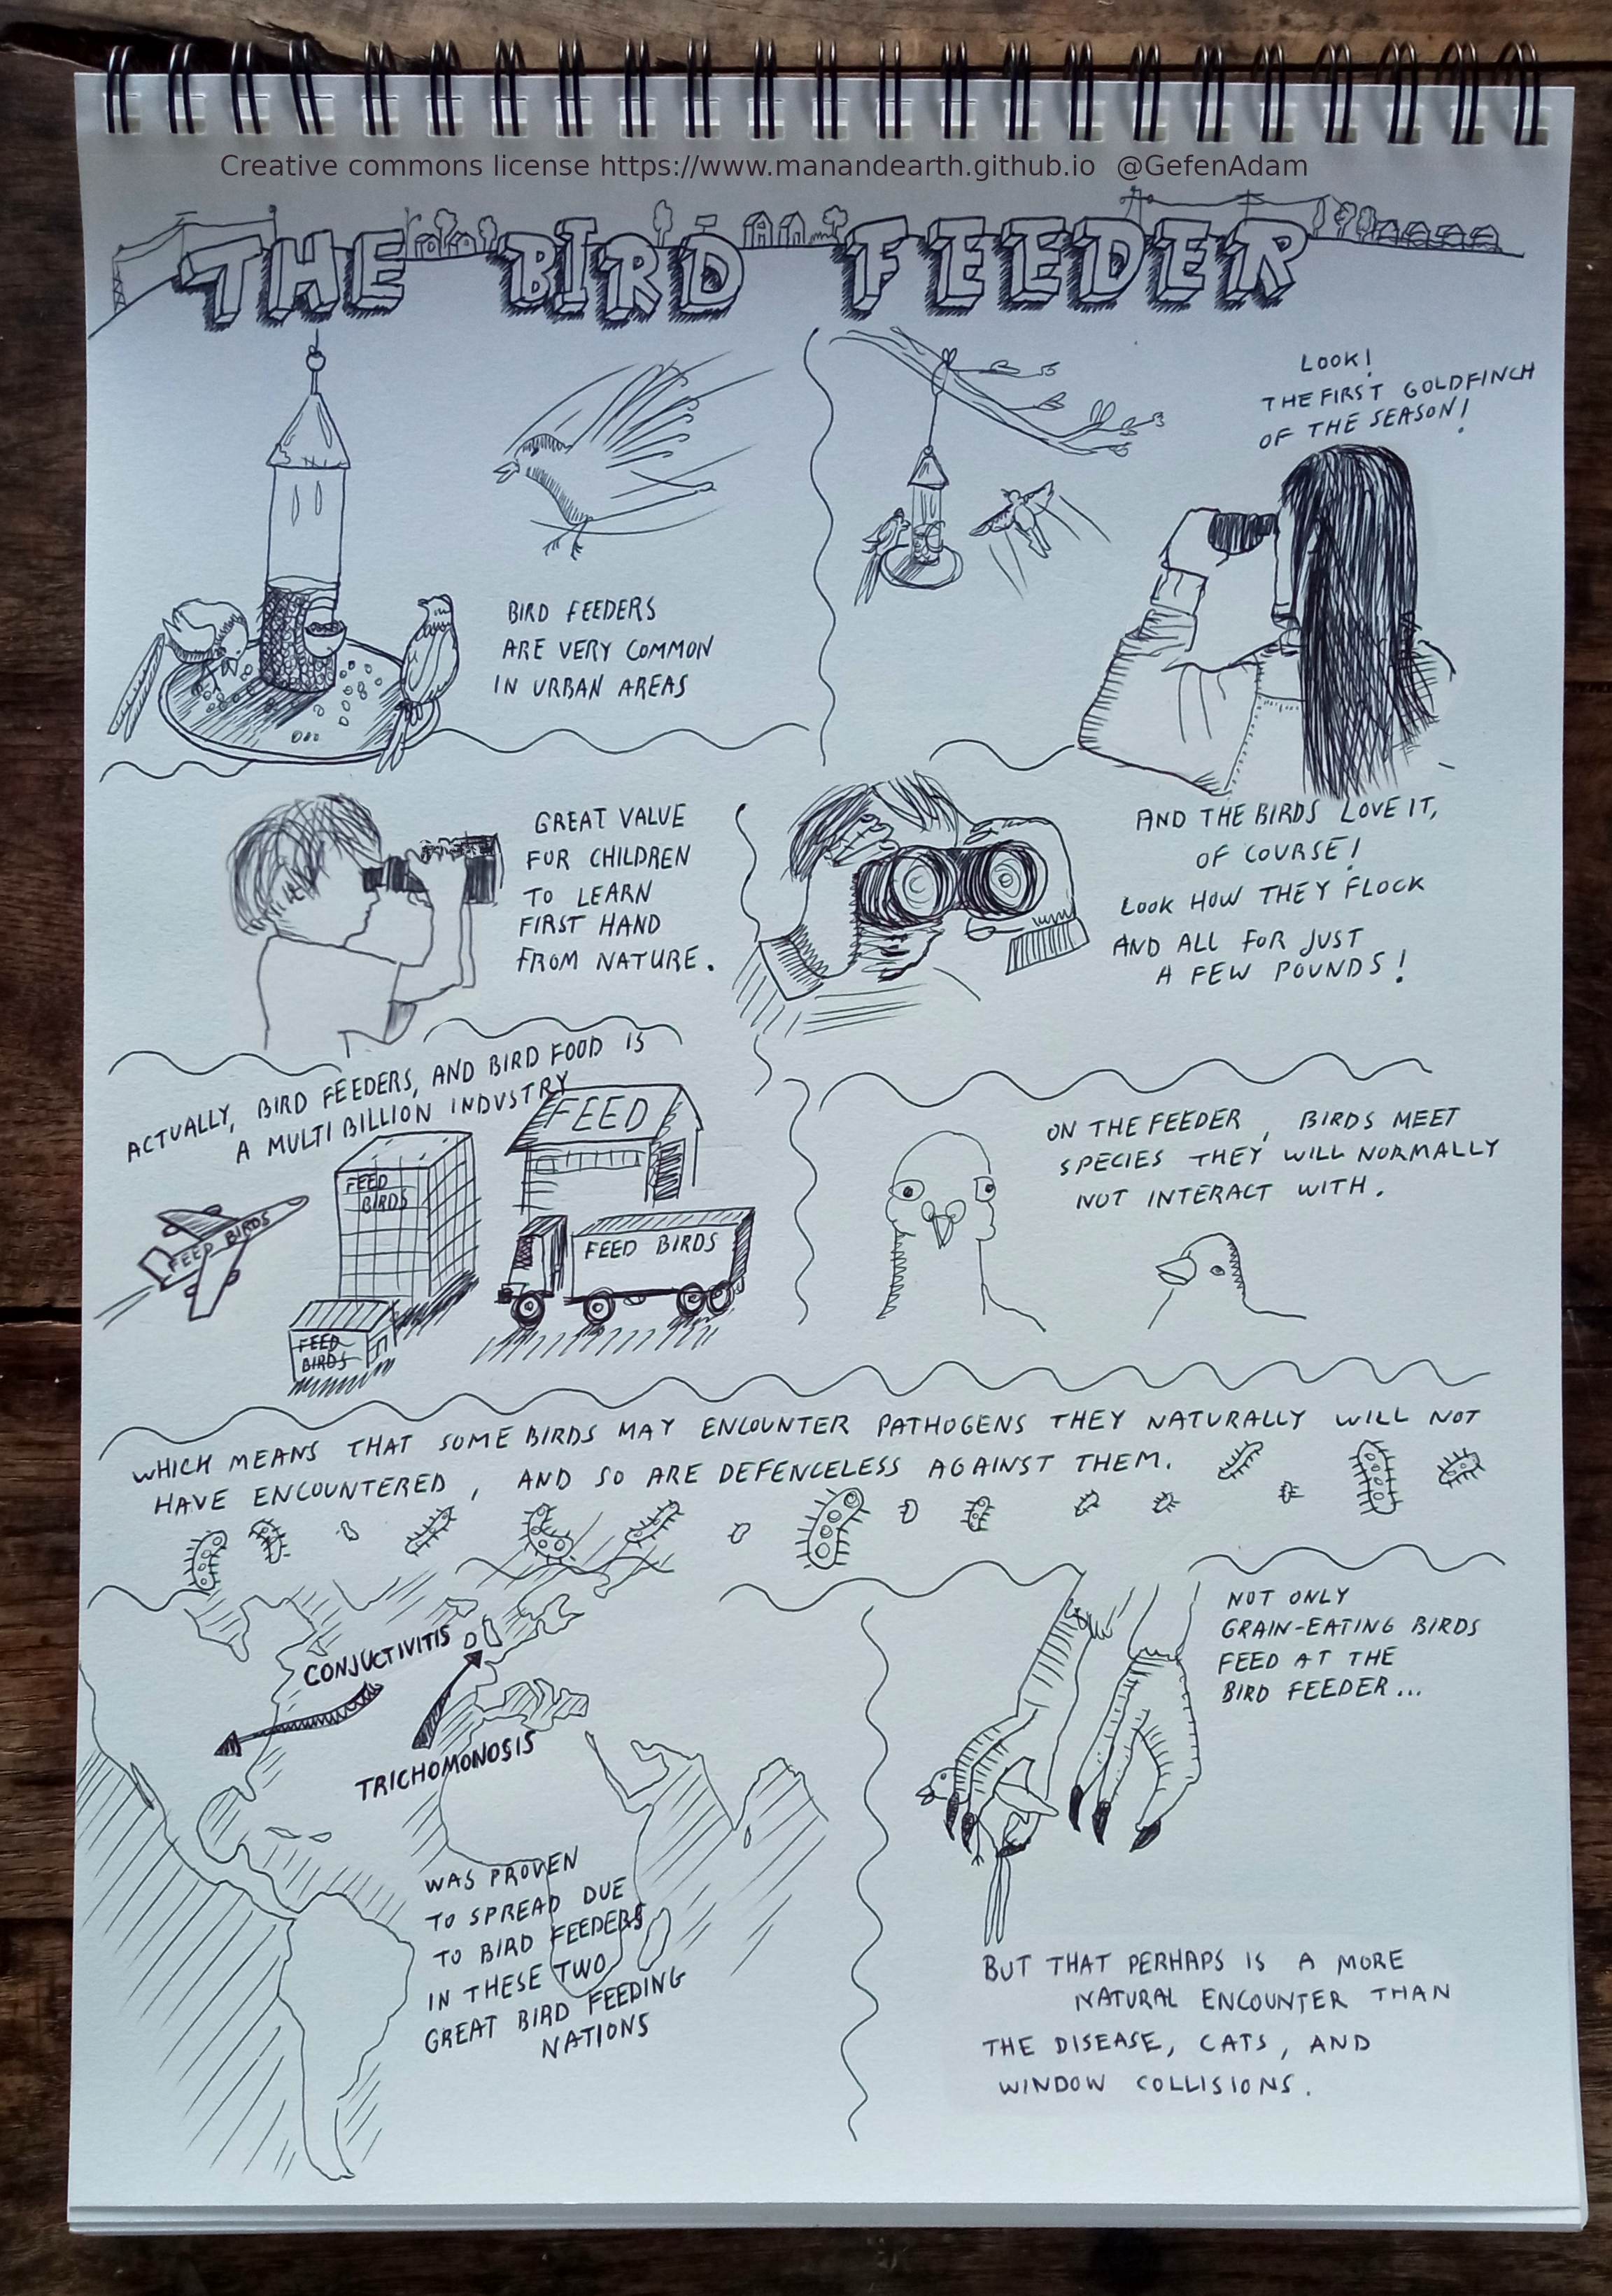 Creative commons license https://www.manandearth.github.io @GefenAdam
THE BIRD FEEDER
BIRD FEEDERS
ARE VERY COMMON
IN URBAN AREAS
LOOK!
THE FIRST GOLDFINCH
OF THE SEASON!
GREAT VALUE
FOR CHILDREN
TO LEARN
FIRST HAND
FROM NATURE.
AND THE BIRDS LOVE IT,
OF COURSE!
LOOK HOW THEY FLOCK
AND ALL FOR JUST
A FEW POUNDS!
ACTUALLY, BIRD FEEDERS, AND BIRD FOOD IS
A MULTI BILLION INDUSTRY
FEED
FEED
BIRDS
FEED BIRDS
FEED BIRDS
FEED
BIRDS
ON THE FEEDER, BIRDS MEET
SPECIES THEY WILL NORMALLY
NOT INTERACT WITH.
WHICH MEANS THAT SOME BIRDS MAY ENCOUNTER PATHOGENS THEY NATURALLY WILL NOT
HAVE ENCOUNTERED, AND SO ARE DEFENCELESS AGAINST THEM.
CONJUCTIVITIS
TRICHOMONOSIS
WAS PROVEN
TO SPREAD DUE
TO BIRD FEEDERS
IN THESE TWO
GREAT BIRD FEEDING
NATIONS
NOT ONLY
GRAIN-EATING BIRDS
FEED AT THE
BIRD FEEDER...
BUT THAT PERHAPS IS A MORE
NATURAL ENCOUNTER THAN
THE DISEASE, CATS, AND
WINDOW COLLISIONS.